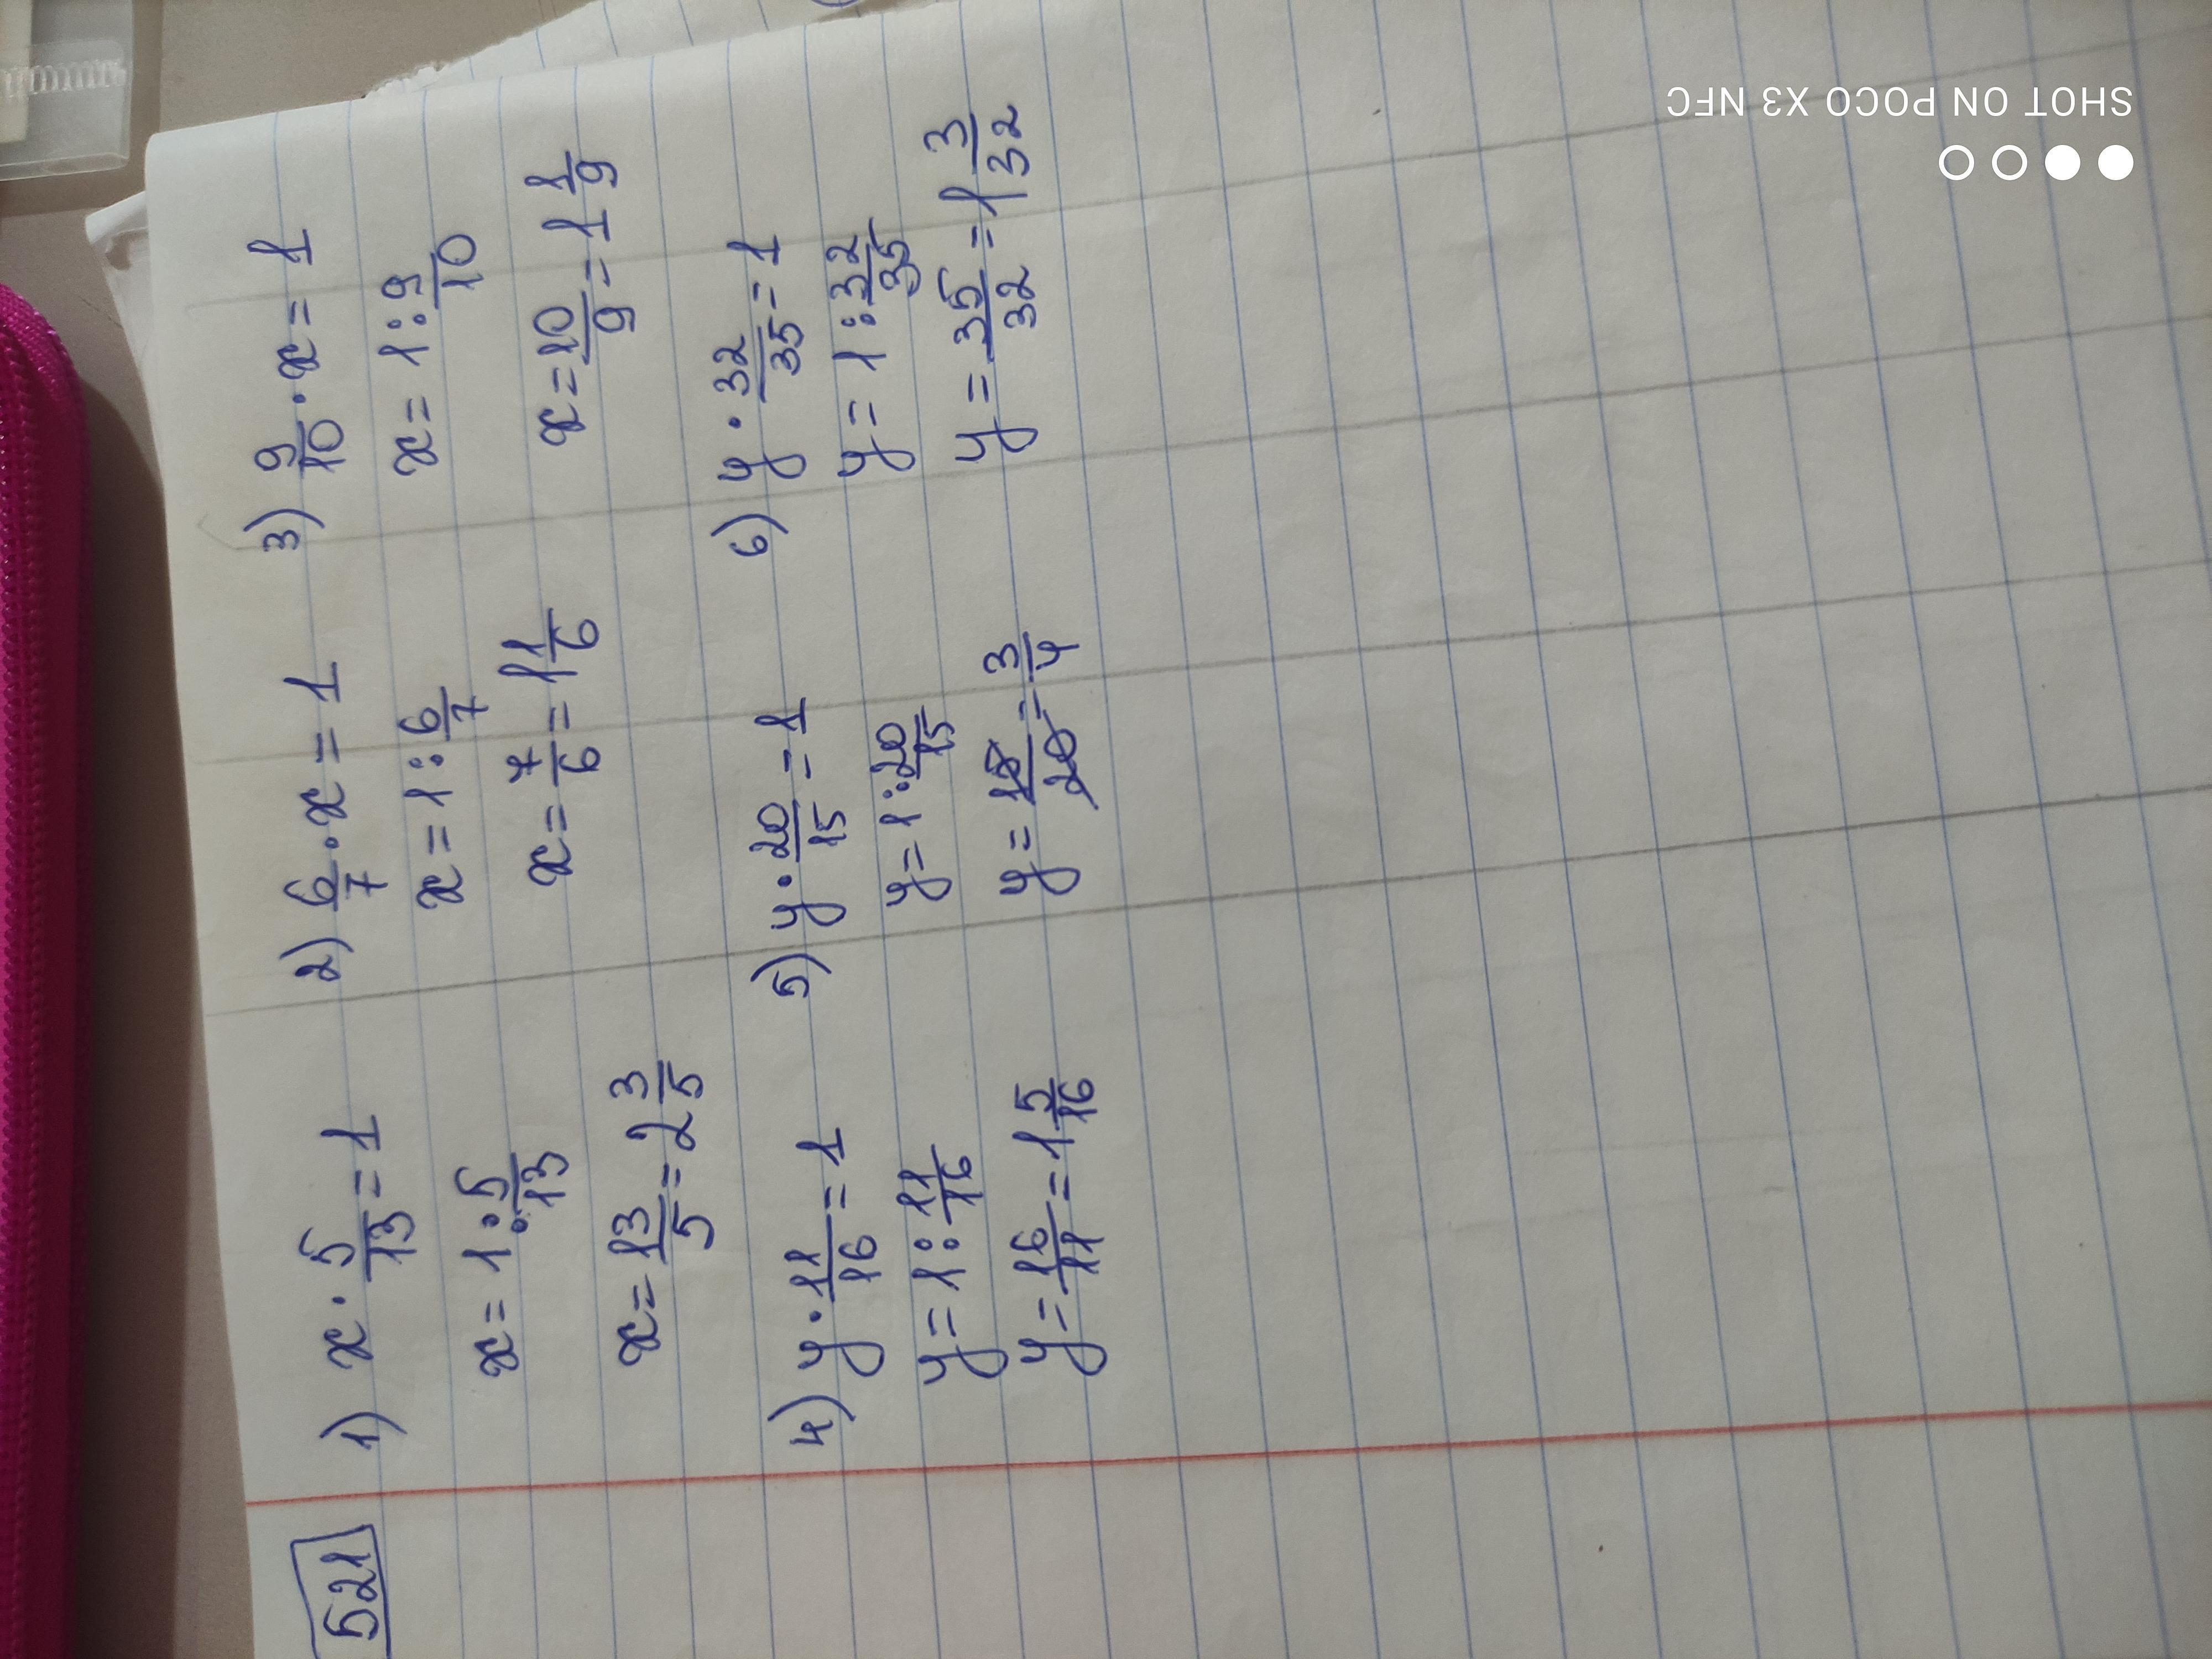 521
1) x · 5/13 = 1
x = 1 : 5/13
x = 13/5 = 2 3/5
2) 6/7 · x = 1
x = 1 : 6/7
x = 7/6 = 1 1/6
3) 9/10 · x = 1
x = 1 : 9/10
x = 10/9 = 1 1/9
4) y · 11/16 = 1
y = 1 : 11/16
y = 16/11 = 1 5/16
5) y · 20/15 = 1
y = 1 : 20/15
y = 15/20 = 3/4
6) y · 32/35 = 1
y = 1 : 32/35
y = 35/32 = 1 3/32
SHOT ON POCO X3 NFC